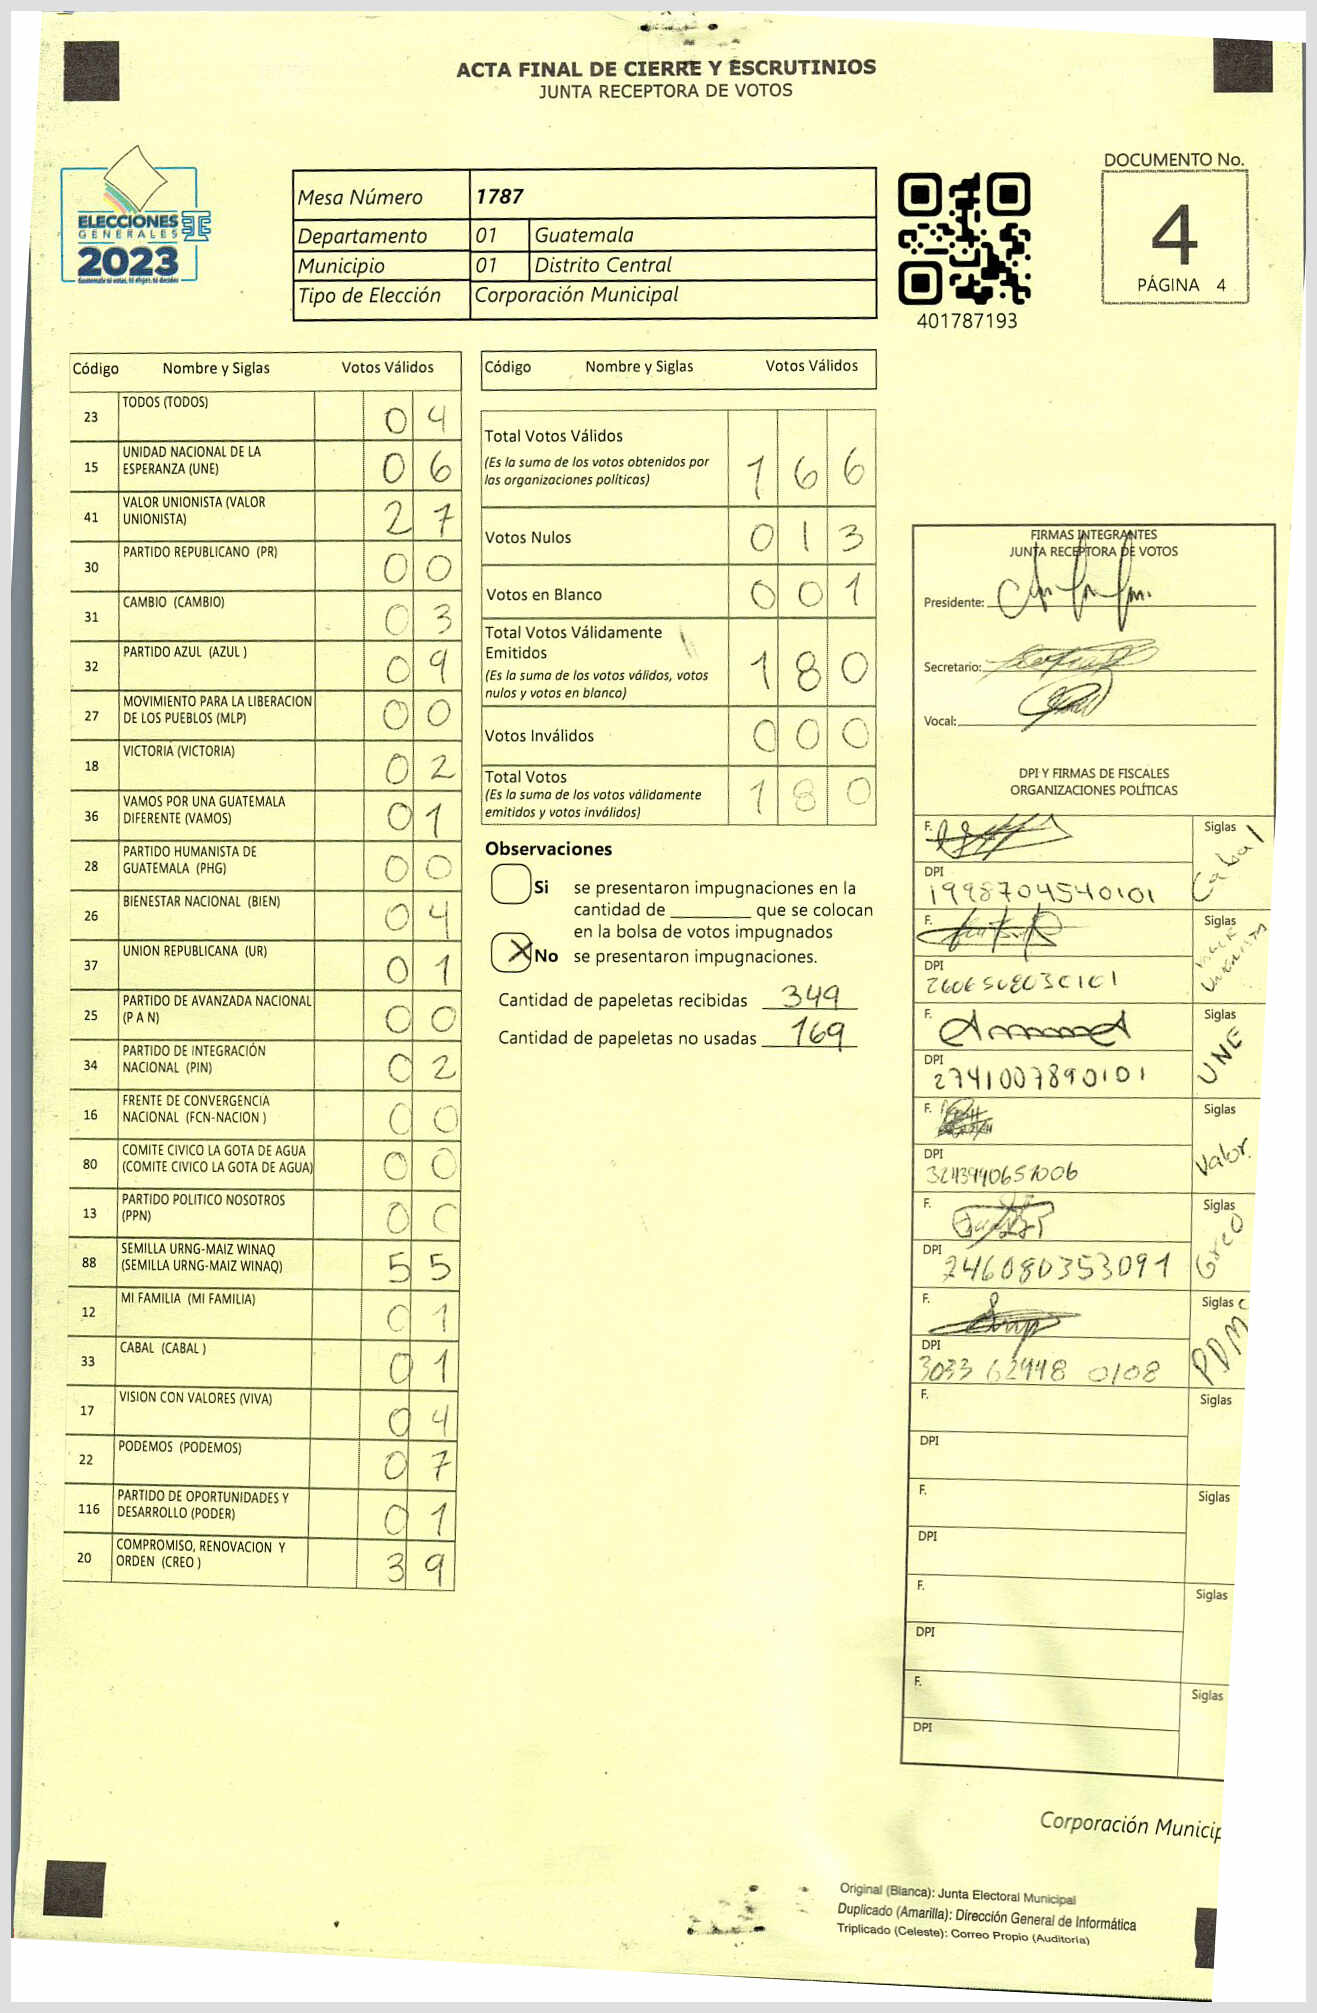 ACTA FINAL DE CIERRE Y ESCRUTINIOS
JUNTA RECEPTORA DE VOTOS
ELECCIONES
GENERALES
2023
Mesa Número 1787
Departamento 01 Guatemala
Municipio 01 Distrito Central
Tipo de Elección Corporación Municipal
401787193
DOCUMENTO No.
4
PÁGINA 4
Código Nombre y Siglas Votos Válidos
23 TODOS (TODOS) 0 4
15 UNIDAD NACIONAL DE LA ESPERANZA (UNE) 0 6
41 VALOR UNIONISTA (VALOR UNIONISTA) 2 7
30 PARTIDO REPUBLICANO (PR) 0 0
31 CAMBIO (CAMBIO) 0 3
32 PARTIDO AZUL (AZUL ) 0 9
27 MOVIMIENTO PARA LA LIBERACION DE LOS PUEBLOS (MLP) 0 0
18 VICTORIA (VICTORIA) 0 2
36 VAMOS POR UNA GUATEMALA DIFERENTE (VAMOS) 0 1
28 PARTIDO HUMANISTA DE GUATEMALA (PHG) 0 0
26 BIENESTAR NACIONAL (BIEN) 0 4
37 UNION REPUBLICANA (UR) 0 1
25 PARTIDO DE AVANZADA NACIONAL (P A N) 0 0
34 PARTIDO DE INTEGRACIÓN NACIONAL (PIN) 0 2
16 FRENTE DE CONVERGENCIA NACIONAL (FCN-NACION ) 0 0
80 COMITE CIVICO LA GOTA DE AGUA (COMITE CIVICO LA GOTA DE AGUA) 0 0
13 PARTIDO POLITICO NOSOTROS (PPN) 0 0
88 SEMILLA URNG-MAIZ WINAQ (SEMILLA URNG-MAIZ WINAQ) 5 5
12 MI FAMILIA (MI FAMILIA) 0 1
33 CABAL (CABAL ) 0 1
17 VISION CON VALORES (VIVA) 0 4
22 PODEMOS (PODEMOS) 0 7
116 PARTIDO DE OPORTUNIDADES Y DESARROLLO (PODER) 0 1
20 COMPROMISO, RENOVACION Y ORDEN (CREO ) 3 9
Código Nombre y Siglas Votos Válidos
Total Votos Válidos 1 6 6
(Es la suma de los votos obtenidos por
las organizaciones políticas)
Votos Nulos 0 1 3
Votos en Blanco 0 0 1
Total Votos Válidamente
Emitidos 1 8 0
(Es la suma de los votos válidos, votos
nulos y votos en blanco)
Votos Inválidos 0 0 0
Total Votos 1 8 0
(Es la suma de los votos válidamente
emitidos y votos inválidos)
Observaciones
Si se presentaron impugnaciones en la
cantidad de ________ que se colocan
en la bolsa de votos impugnados
X No se presentaron impugnaciones.
Cantidad de papeletas recibidas 349
Cantidad de papeletas no usadas 169
FIRMAS INTEGRANTES
JUNTA RECEPTORA DE VOTOS
Presidente:
Secretario:
Vocal:
DPI Y FIRMAS DE FISCALES
ORGANIZACIONES POLÍTICAS
F. Siglas Cabal
DPI 1998704540101
F. Siglas
DPI
F. Siglas UNE
DPI 2741007890101
F. Siglas Valor.
DPI
F. Siglas Creo
DPI 246080353091
F. Siglas
DPI
F. Siglas
DPI
F. Siglas
DPI
F. Siglas
DPI
F. Siglas
DPI
Corporación Municip
Original (Blanca): Junta Electoral Municipal
Duplicado (Amarilla): Dirección General de Informática
Triplicado (Celeste): Correo Propio (Auditoría)